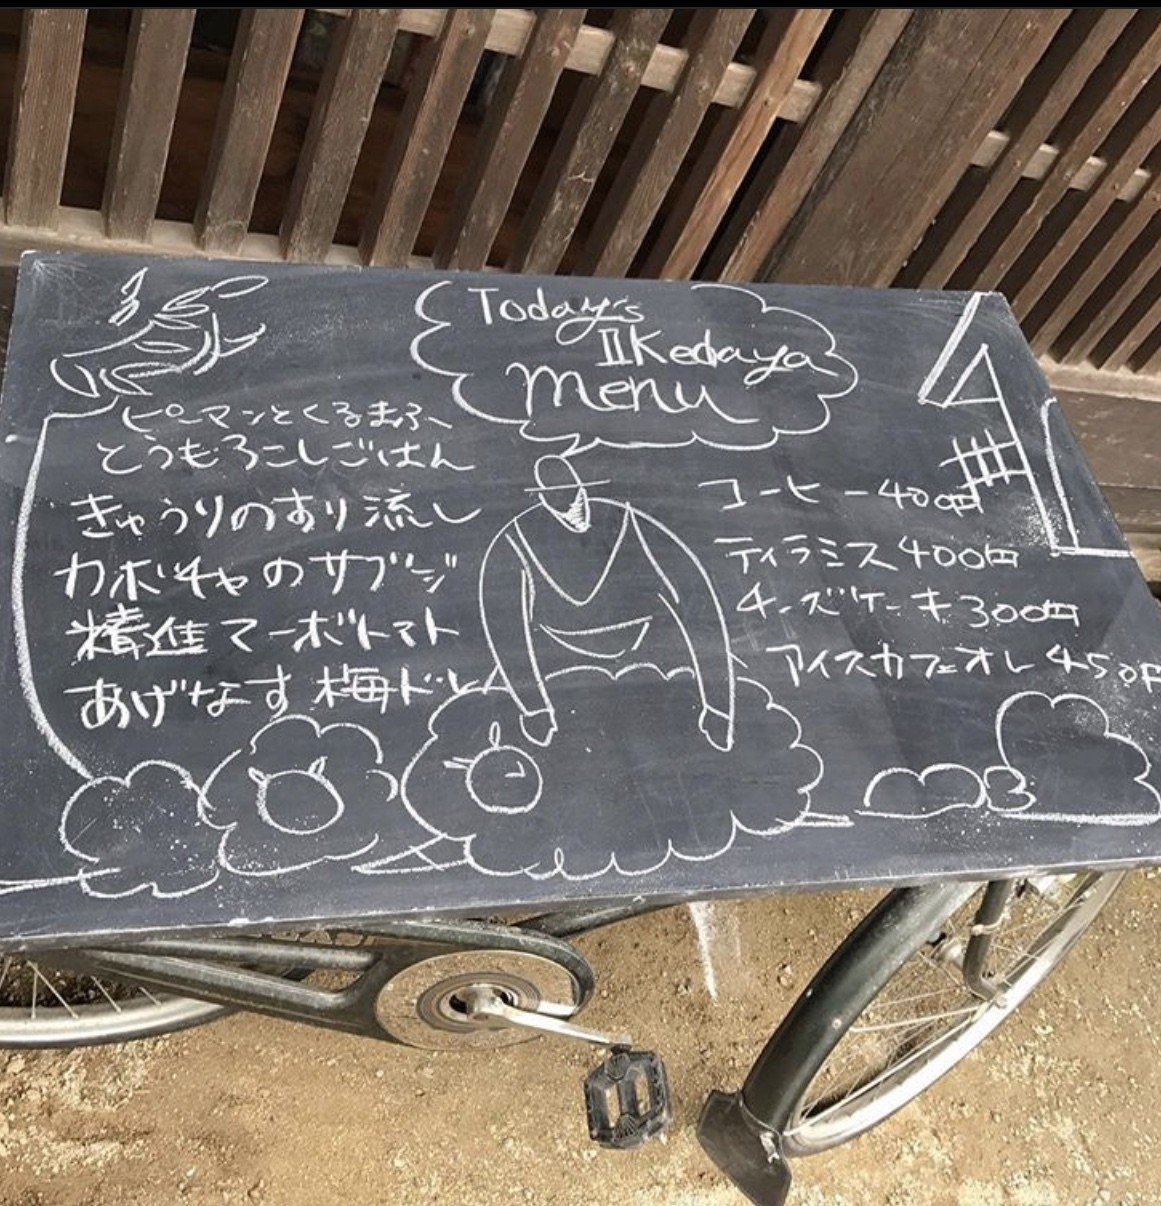 Today's
IIKedaya
menu
ピーマンとくるまふ
とうもろこしごはん
きゅうりのすり流し
カボチャのサブジ
精進マーボトマト
あげなす梅ドレ
コーヒー400円
ティラミス400円
チーズケーキ300円
アイスカフェオレ450円